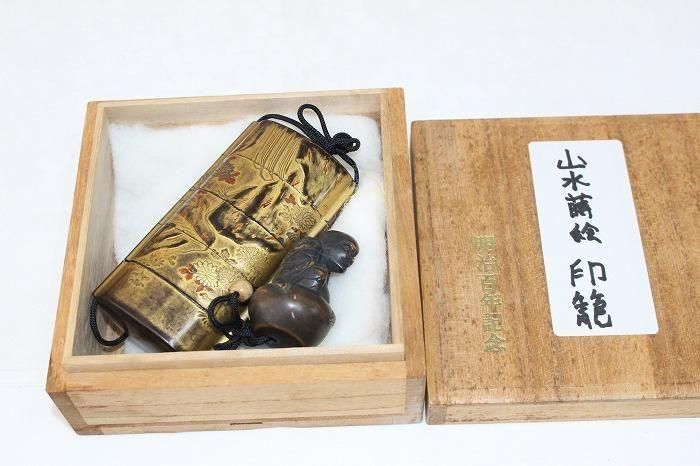 山水蒔絵 印籠
明治百年記念